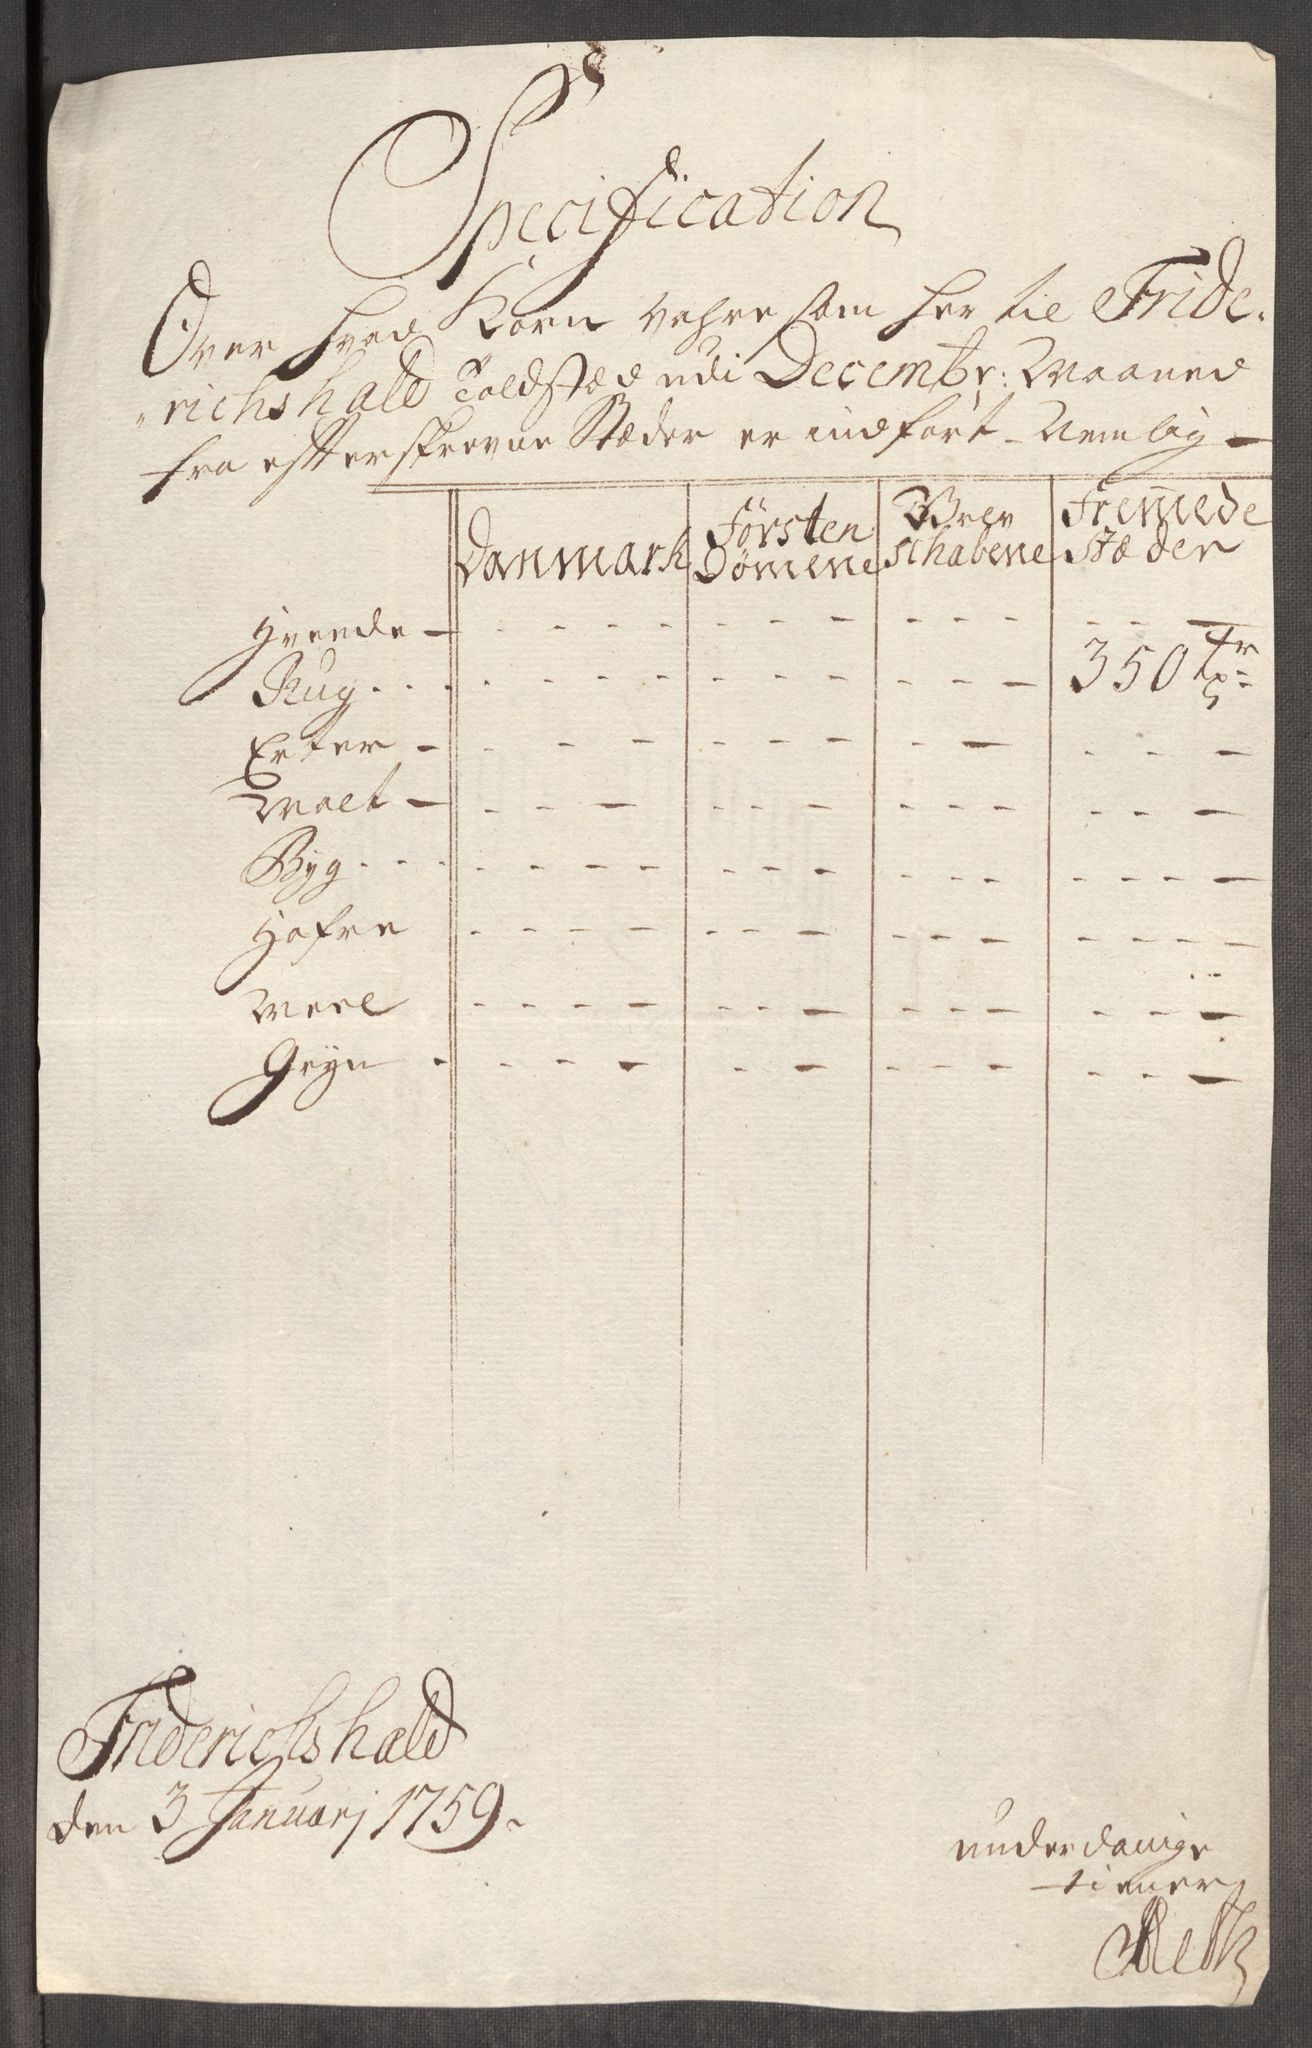 Specification
Over hvad Korn vahre som her til Fride-
richshald Toldstæd udi Decembr: Maaned
fra effterskrevne Stæder er indført Nemlig
Danmark Førsten Dømene Grev schabene Fremede stæder
Hveede
Rug 350 Tr
Erter
Malt
Byg
Hafre
Meel
Gryn
Friderichshald
den 3 Januarj 1759.
underdanige
tiener